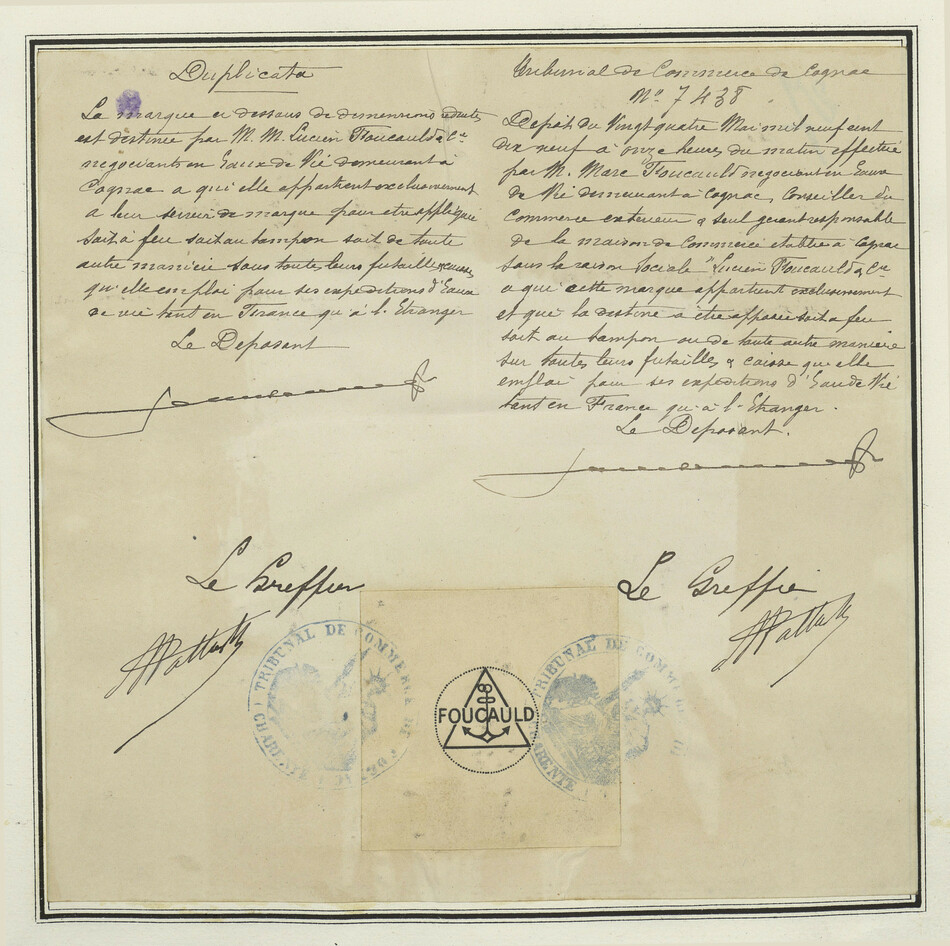 Duplicata
La marque ci dessous de dimensions réduites
est destinée par M. M. Lucien Foucauld & Cie
negociants en Eaux de Vie demeurant à
Cognac a qui elle appartient exclusivement
a leur servir de marque pour etre appliqué
soit à feu soit au tampon soit de toute
autre maniere sous toutes leurs futailles & caisses
qu'elle emploi pour ses expeditions d'Eaux
de vie tant en France qu'à l'Etranger
Le Deposant
Le Greffier
Tribunal de Commerce de Cognac
No 7438
Depôt du Vingt quatre Mai mil neuf cent
dix neuf à onze heures du matin effectué
par M. Marc Foucauld negociant en Eaux
de Vie demeurant à Cognac, Conseiller du
Commerce exterieur & seul gerant responsable
de la maison de Commerce etablie à Cognac
sous la raison Sociale "Lucien Foucauld & Cie
a qui cette marque appartient exclusivement
et que la destine a être apposée soit a feu
soit au tampon ou de toute autre maniere
sur toutes leurs futailles & caisse que elle
emploi pour ses expeditions d'Eau de Vie
tant en France qu'à l'Etranger.
Le Deposant.
Le Greffie
TRIBUNAL DE COMMERCE DE
CHARENTE
FOUCAULD
TRIBUNAL DE COMM
CHARENTE